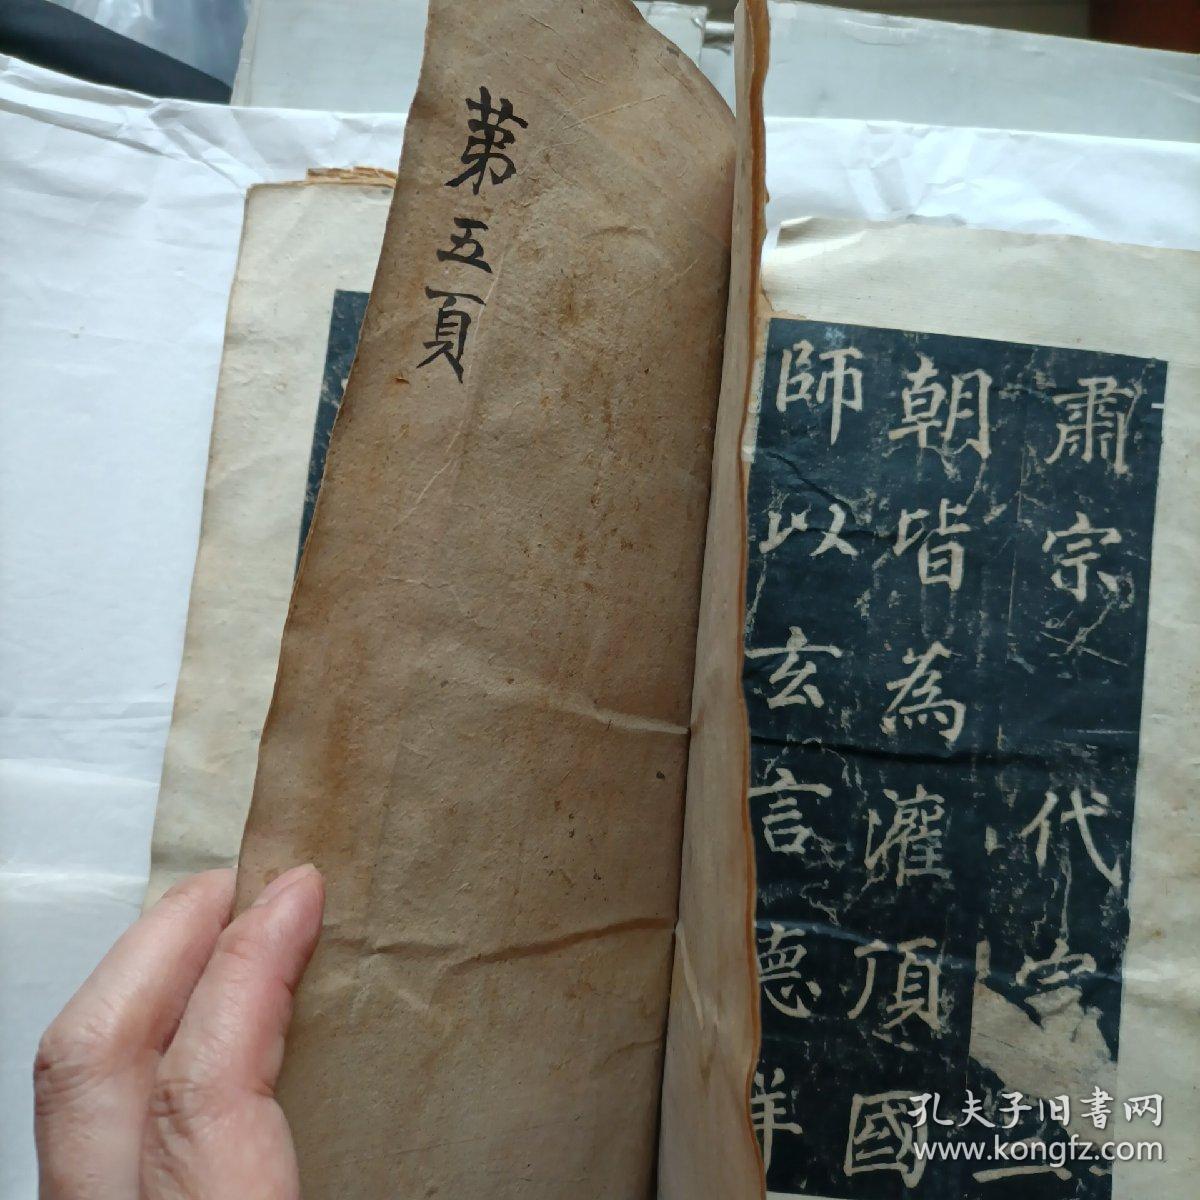 第五頁
肅宗代宗三
朝皆為灌頂國
師以玄言德祥
孔夫子旧書网
www.kongfz.com